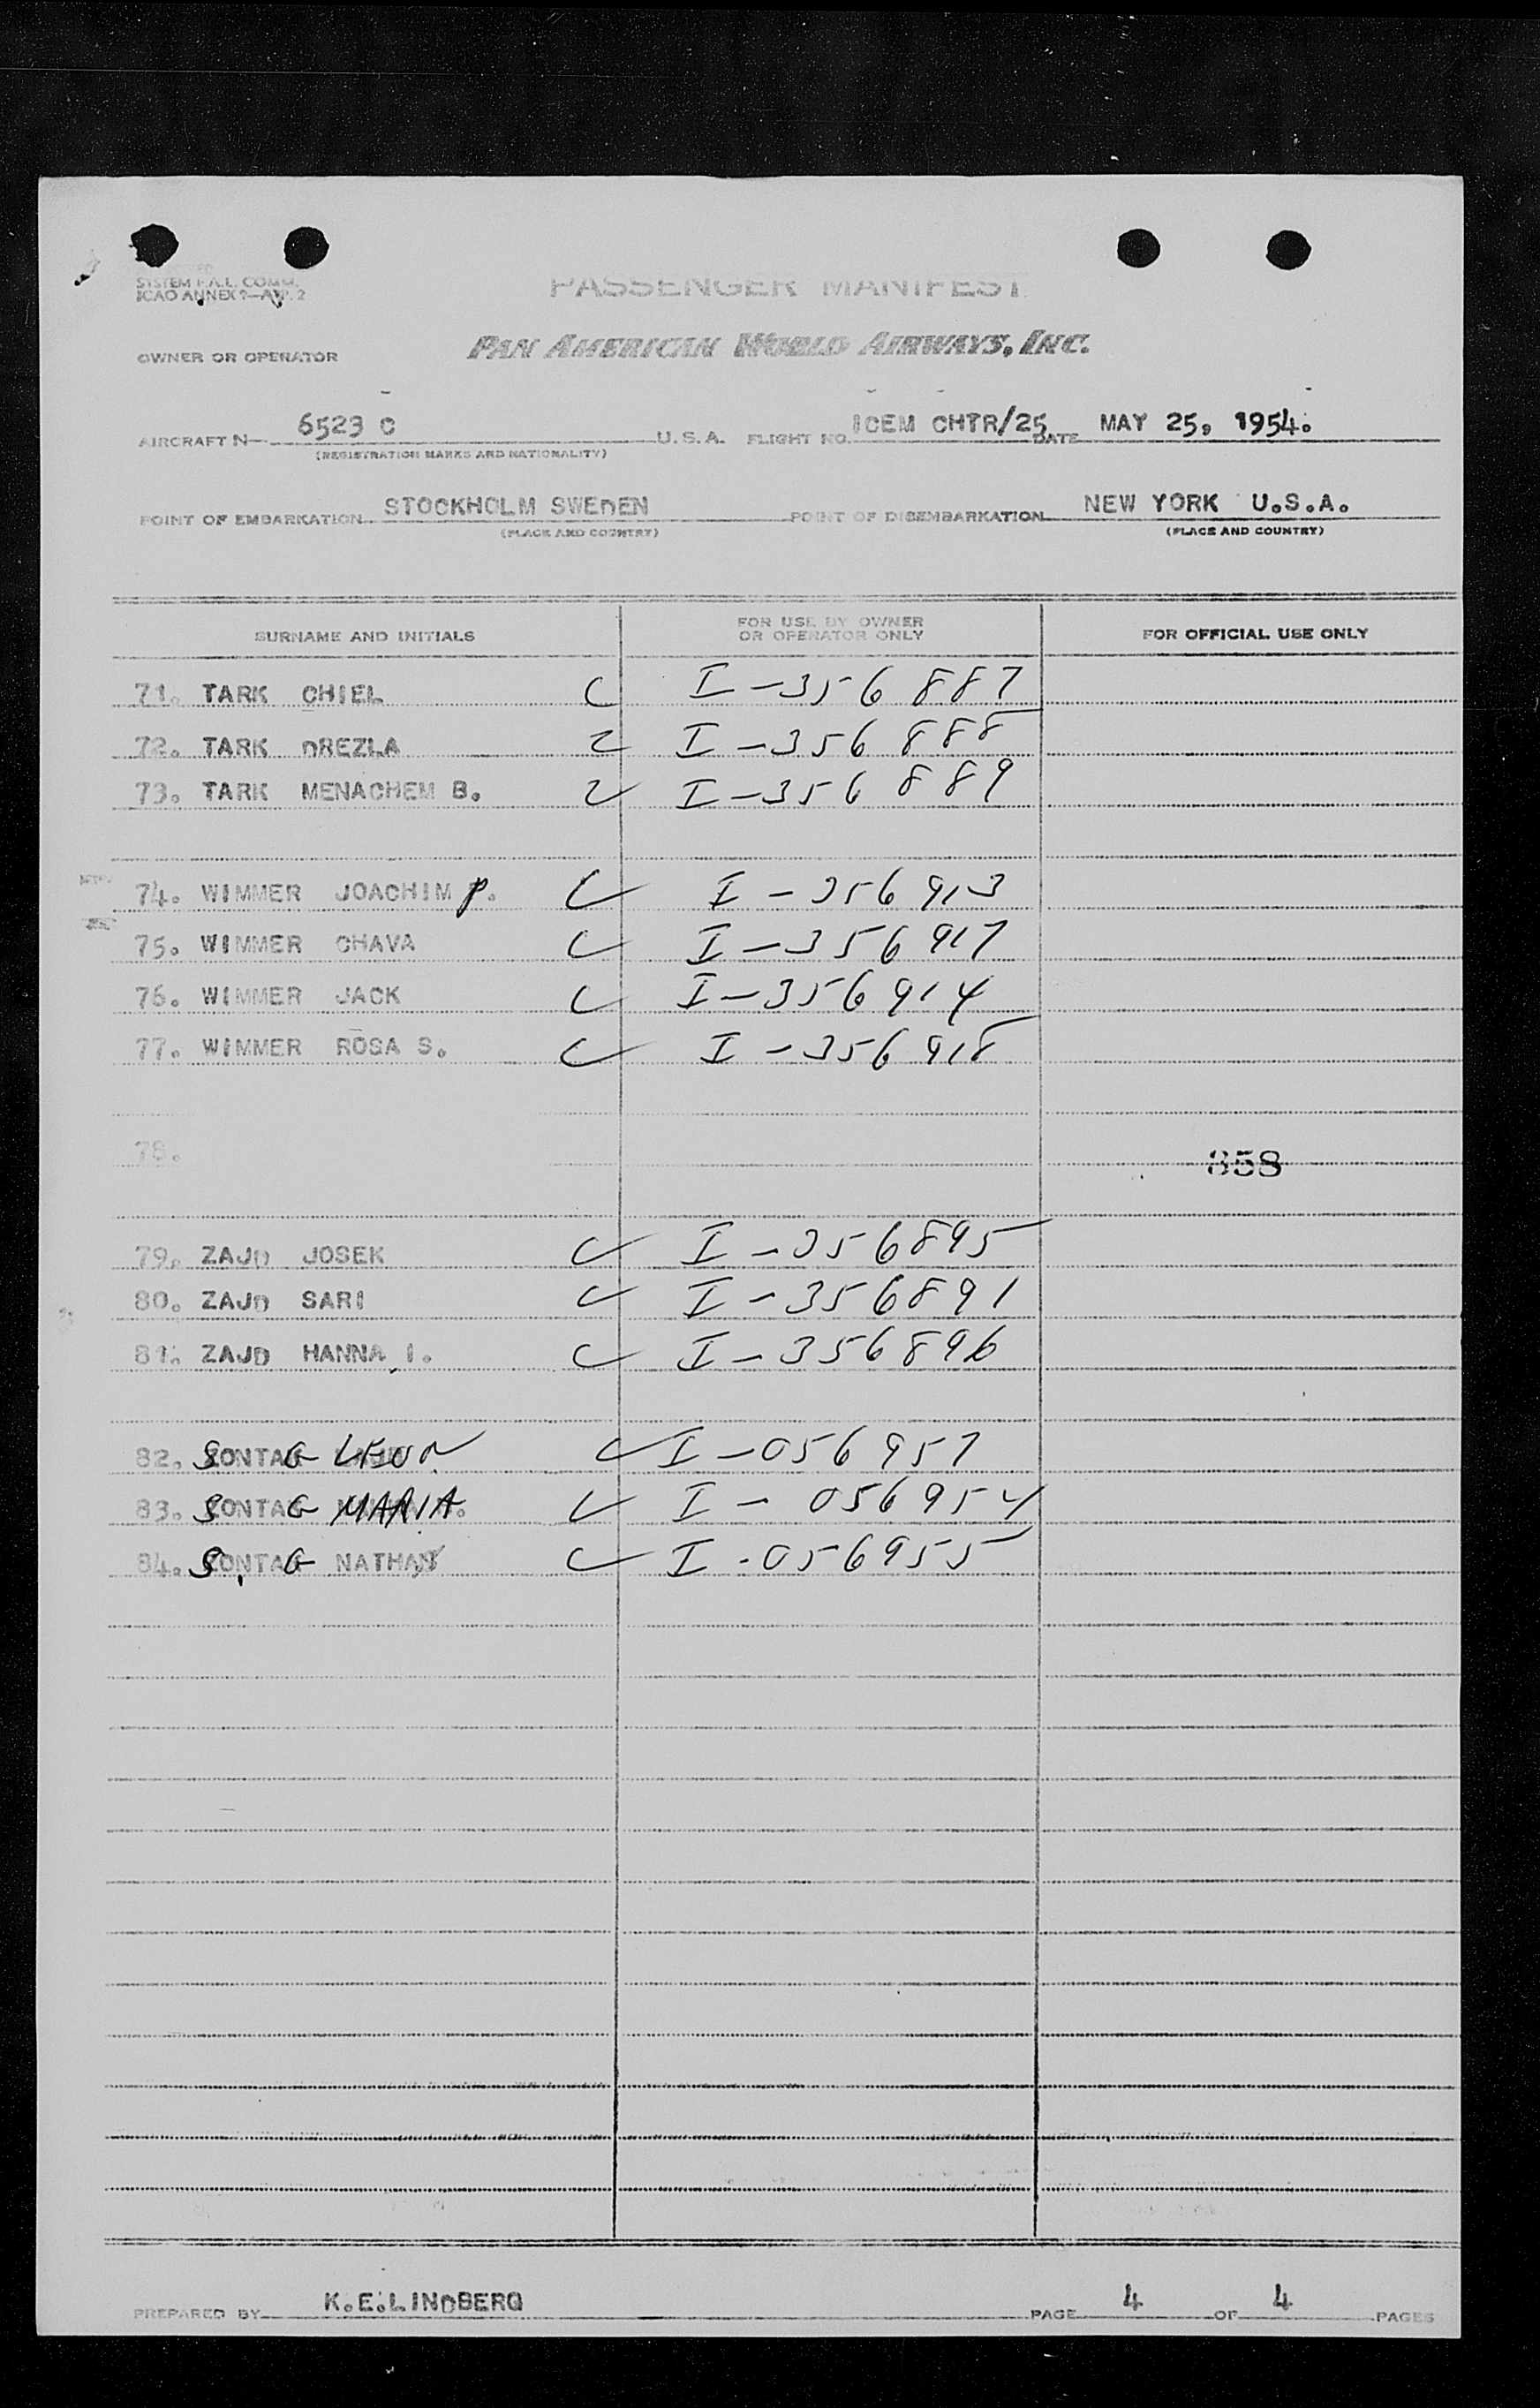 SYSTEM F.A.L. COMM.
ICAO ANNEX 9—APP. 2
PASSENGER MANIFEST
OWNER OR OPERATOR PAN AMERICAN WORLD AIRWAYS, INC.
AIRCRAFT N— 6523 C U.S.A. FLIGHT NO. ICEM CHTR/25 DATE MAY 25, 1954.
(REGISTRATION MARKS AND NATIONALITY)
POINT OF EMBARKATION STOCKHOLM SWEDEN POINT OF DISEMBARKATION NEW YORK U.S.A.
(PLACE AND COUNTRY) (PLACE AND COUNTRY)
SURNAME AND INITIALS FOR USE BY OWNER OR OPERATOR ONLY FOR OFFICIAL USE ONLY
71. TARK CHIEL I-356 887
72. TARK DREZLA I-356 888
73. TARK MENACHEM B. I-356 889
74. WIMMER JOACHIM P. I-356 913
75. WIMMER CHAVA I-356 917
76. WIMMER JACK I-356 914
77. WIMMER ROSA S. I-356 918
78.
858
79. ZAJD JOSEK I-356895
80. ZAJD SARI I-356891
81. ZAJD HANNA I. I-356896
82. SONTAG LEON I-056957
83. SONTAG MARIA I-056954
84. SONTAG NATHAN I-056955
PREPARED BY K.E.LINDBERG PAGE 4 OF 4 PAGES